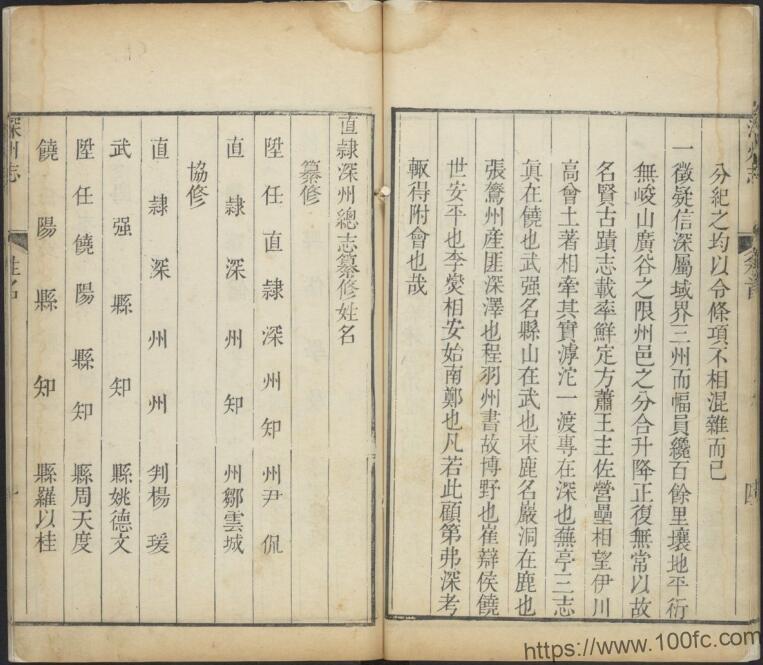 分紀之均以令條項不相混雜而已
一徵疑信深屬域界三州而幅員纔百餘里壤地平衍
無峻山廣谷之限州邑之分合升降正復無常以故
名賢古蹟志載率鮮定方蕭王主佐營壘相望伊川
高曾土著相牽其實滹沱一渡專在深也蕪亭三志
眞在饒也武强名縣山在武也束鹿名巖洞在鹿也
張鷟州產匪深澤也程羽州書故博野也崔辯侯饒
世安平也李燮相安始南鄭也凡若此顧第弗深考
輙得附會也哉
直隷深州總志纂修姓名
纂修
陞任直隷深州知州尹侃
直隷深州知州鄒雲城
協修
直隷深州州判楊瑗
武强縣知縣姚德文
陞任饒陽縣知縣周天度
饒陽縣知縣羅以桂
深州志
姓名
https://www.100fc.com